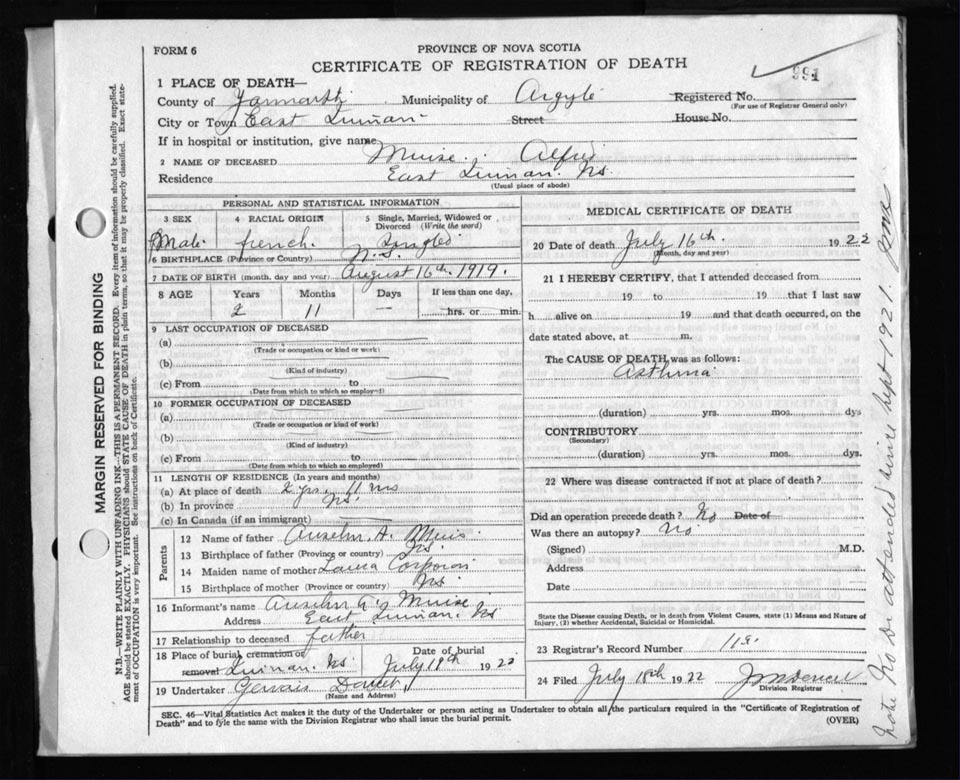 FORM 6
PROVINCE OF NOVA SCOTIA
CERTIFICATE OF REGISTRATION OF DEATH
991
1 PLACE OF DEATH—
County of Yarmouth Municipality of Argyle Registered No.
(For use of Registrar General only)
City or Town East Quinan Street House No.
If in hospital or institution, give name
2 NAME OF DECEASED Muise
Residence East Quinan. Ns.
(Usual place of abode)
PERSONAL AND STATISTICAL INFORMATION
3 SEX 4 RACIAL ORIGIN 5 Single, Married, Widowed or Divorced (Write the word)
Male french. Single
6 BIRTHPLACE (Province or Country) N.S.
7 DATE OF BIRTH (month, day and year) August 16th 1919.
8 AGE Years Months Days If less than one day,
2 11 — hrs. or min.
9 LAST OCCUPATION OF DECEASED
(a)
(Trade or occupation or kind or work)
(b)
(Kind of industry)
(c) From to
(Date from which to which so employed)
10 FORMER OCCUPATION OF DECEASED
(a)
(Trade or occupation or kind of work)
(b)
(Kind of industry)
(c) From to
(Date from which to which so employed)
11 LENGTH OF RESIDENCE (In years and months)
(a) At place of death 2 yrs. 11 mos
(b) In province Ns.
(c) In Canada (if an immigrant)
Parents
12 Name of father Anselm A. Muis
13 Birthplace of father (Province or country) Ns.
14 Maiden name of mother Corporon
15 Birthplace of mother (Province or country) Ns
16 Informant's name Anselm A. Muise
Address East Quinan. Ns
17 Relationship to deceased father
18 Place of burial cremation or removal Quinan. Ns. Date of burial July 18th 1922
19 Undertaker Gervais
(Name and Address)
MEDICAL CERTIFICATE OF DEATH
20 Date of death July 16th. 1922
(Month, day and year)
21 I HEREBY CERTIFY, that I attended deceased from
19 to 19 that I last saw
h alive on 19 and that death occurred, on the
date stated above, at m.
The CAUSE OF DEATH was as follows:
Asthma
(duration) yrs. mos. dys
CONTRIBUTORY
(Secondary)
(duration) yrs. mos. dys.
22 Where was disease contracted if not at place of death?
Did an operation precede death? No Date of
Was there an autopsy? No
(Signed) M.D.
Address
Date
State the Disease causing Death, or in death from Violent Causes, state (1) Means and Nature of Injury, (2) whether Accidental, Suicidal or Homicidal.
23 Registrar's Record Number 118
24 Filed July 18th 1922
Division Registrar
SEC. 46—Vital Statistics Act makes it the duty of the Undertaker or person acting as Undertaker to obtain all the particulars required in the "Certificate of Registration of
Death" and to fyle the same with the Division Registrar who shall issue the burial permit.
(OVER)
MARGIN RESERVED FOR BINDING
N.B.—WRITE PLAINLY WITH UNFADING INK—THIS IS A PERMANENT RECORD. Every item of information should be carefully supplied.
AGE should be stated EXACTLY. PHYSICIANS should STATE CAUSE OF DEATH in plain terms, so that it may be properly classified. Exact state-
ment of OCCUPATION is very important. See instructions on back of Certificate.
Note No Dr attended since Sept 1921.